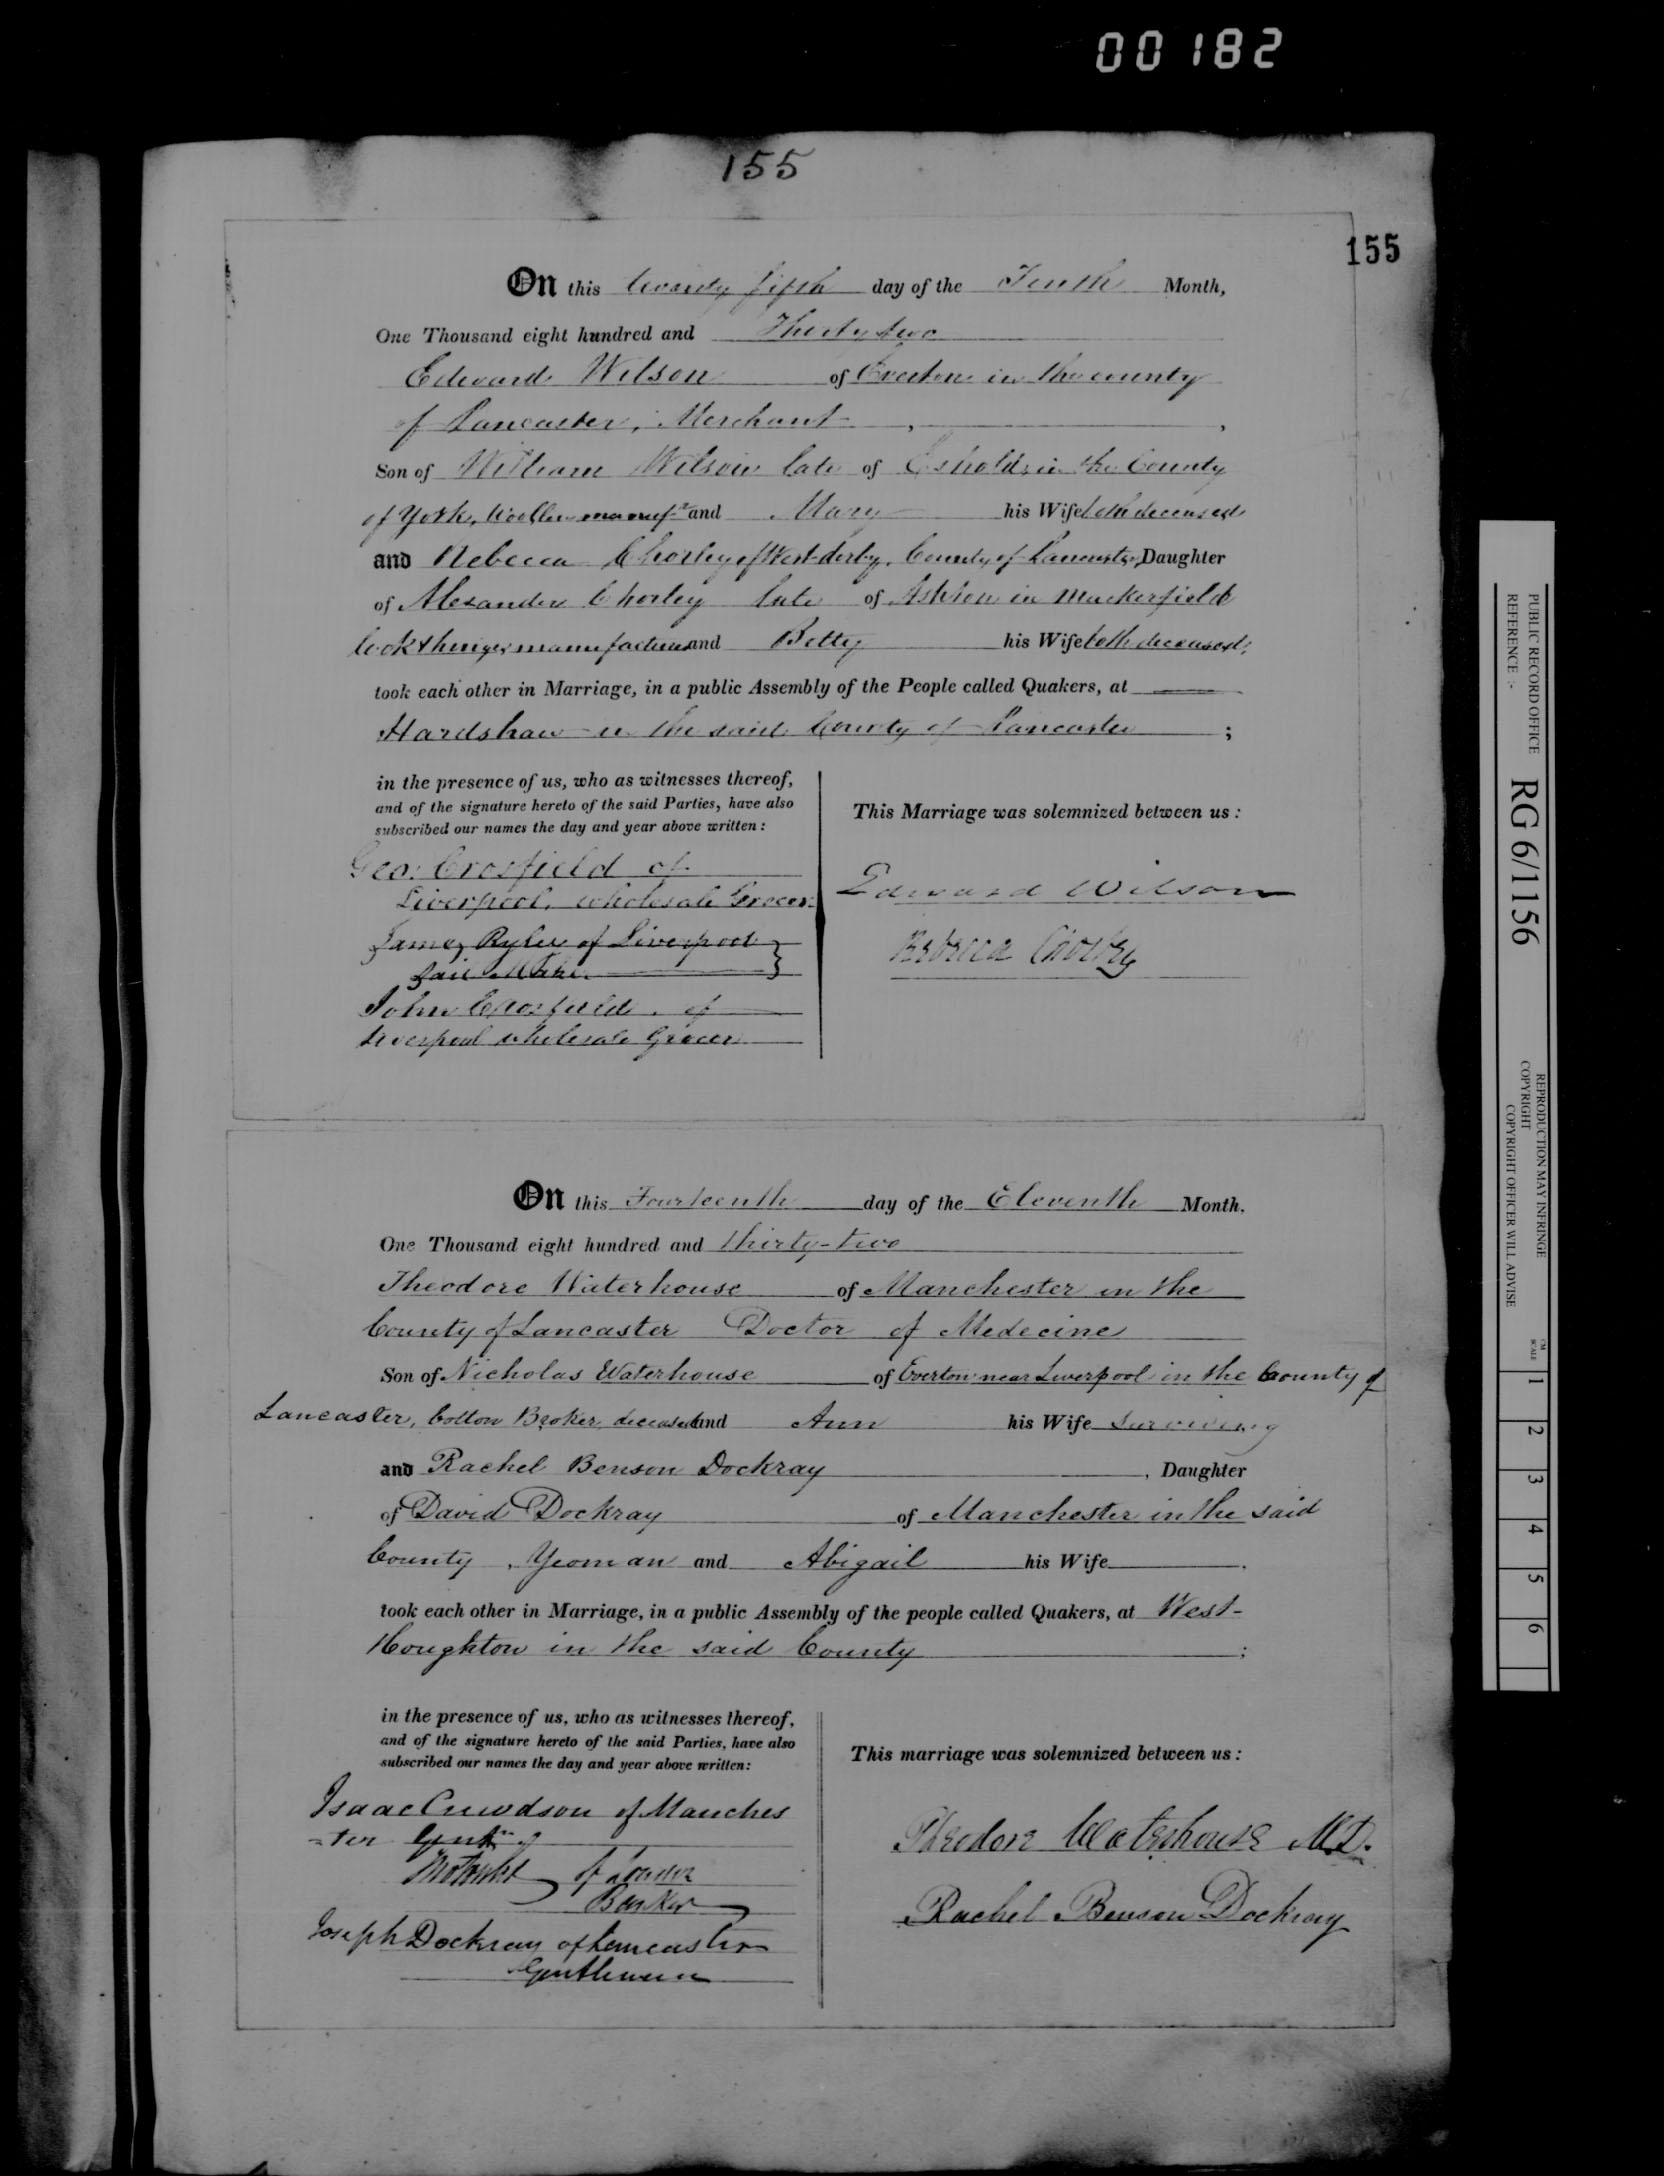 00182
155
155
On this twenty fifth day of the Tenth Month,
One Thousand eight hundred and Thirty two
Edward Wilson of Everton in the county
of Lancaster, Merchant
Son of William Wilson late of Esholt, in the County
of York, Woollen manufr and Mary his Wife both deceased
and Rebecca Chorley of West-derby, County of Lancaster, Daughter
of Alexander Chorley late of Ashton in Mackerfield
lock & hinge manufacturer and Betty his Wife both deceased;
took each other in Marriage, in a public Assembly of the People called Quakers, at
Hardshaw in the said County of Lancaster ;
in the presence of us, who as witnesses thereof,
and of the signature hereto of the said Parties, have also
subscribed our names the day and year above written:
Geo: Crosfield of
Liverpool, wholesale Grocer
James Ryley of Liverpool
Sail Maker
John Crosfield of
Liverpool wholesale Grocer
This Marriage was solemnized between us:
Edward Wilson
Rebecca Chorley
On this Fourteenth day of the Eleventh Month,
One Thousand eight hundred and thirty-two
Theodore Waterhouse of Manchester in the
County of Lancaster Doctor of Medecine
Son of Nicholas Waterhouse of Everton near Liverpool in the County of
Lancaster, Cotton Broker, deceased and Ann his Wife surviving
and Rachel Benson Dockray , Daughter
of David Dockray of Manchester in the said
County , Yeoman and Abigail his Wife .
took each other in Marriage, in a public Assembly of the people called Quakers, at West-
Houghton in the said County ;
in the presence of us, who as witnesses thereof,
and of the signature hereto of the said Parties, have also
subscribed our names the day and year above written:
Isaac Crewdson of Manches
-ter Gentn
of London
Banker
Joseph Dockray of Lancaster
Gentleman
This marriage was solemnized between us:
Theodore Waterhouse M.D.
Rachel Benson Dockray
PUBLIC RECORD OFFICE
REFERENCE :-
RG 6/1156
REPRODUCTION MAY INFRINGE
COPYRIGHT
COPYRIGHT OFFICER WILL ADVISE
CM
SCALE
1
2
3
4
5
6